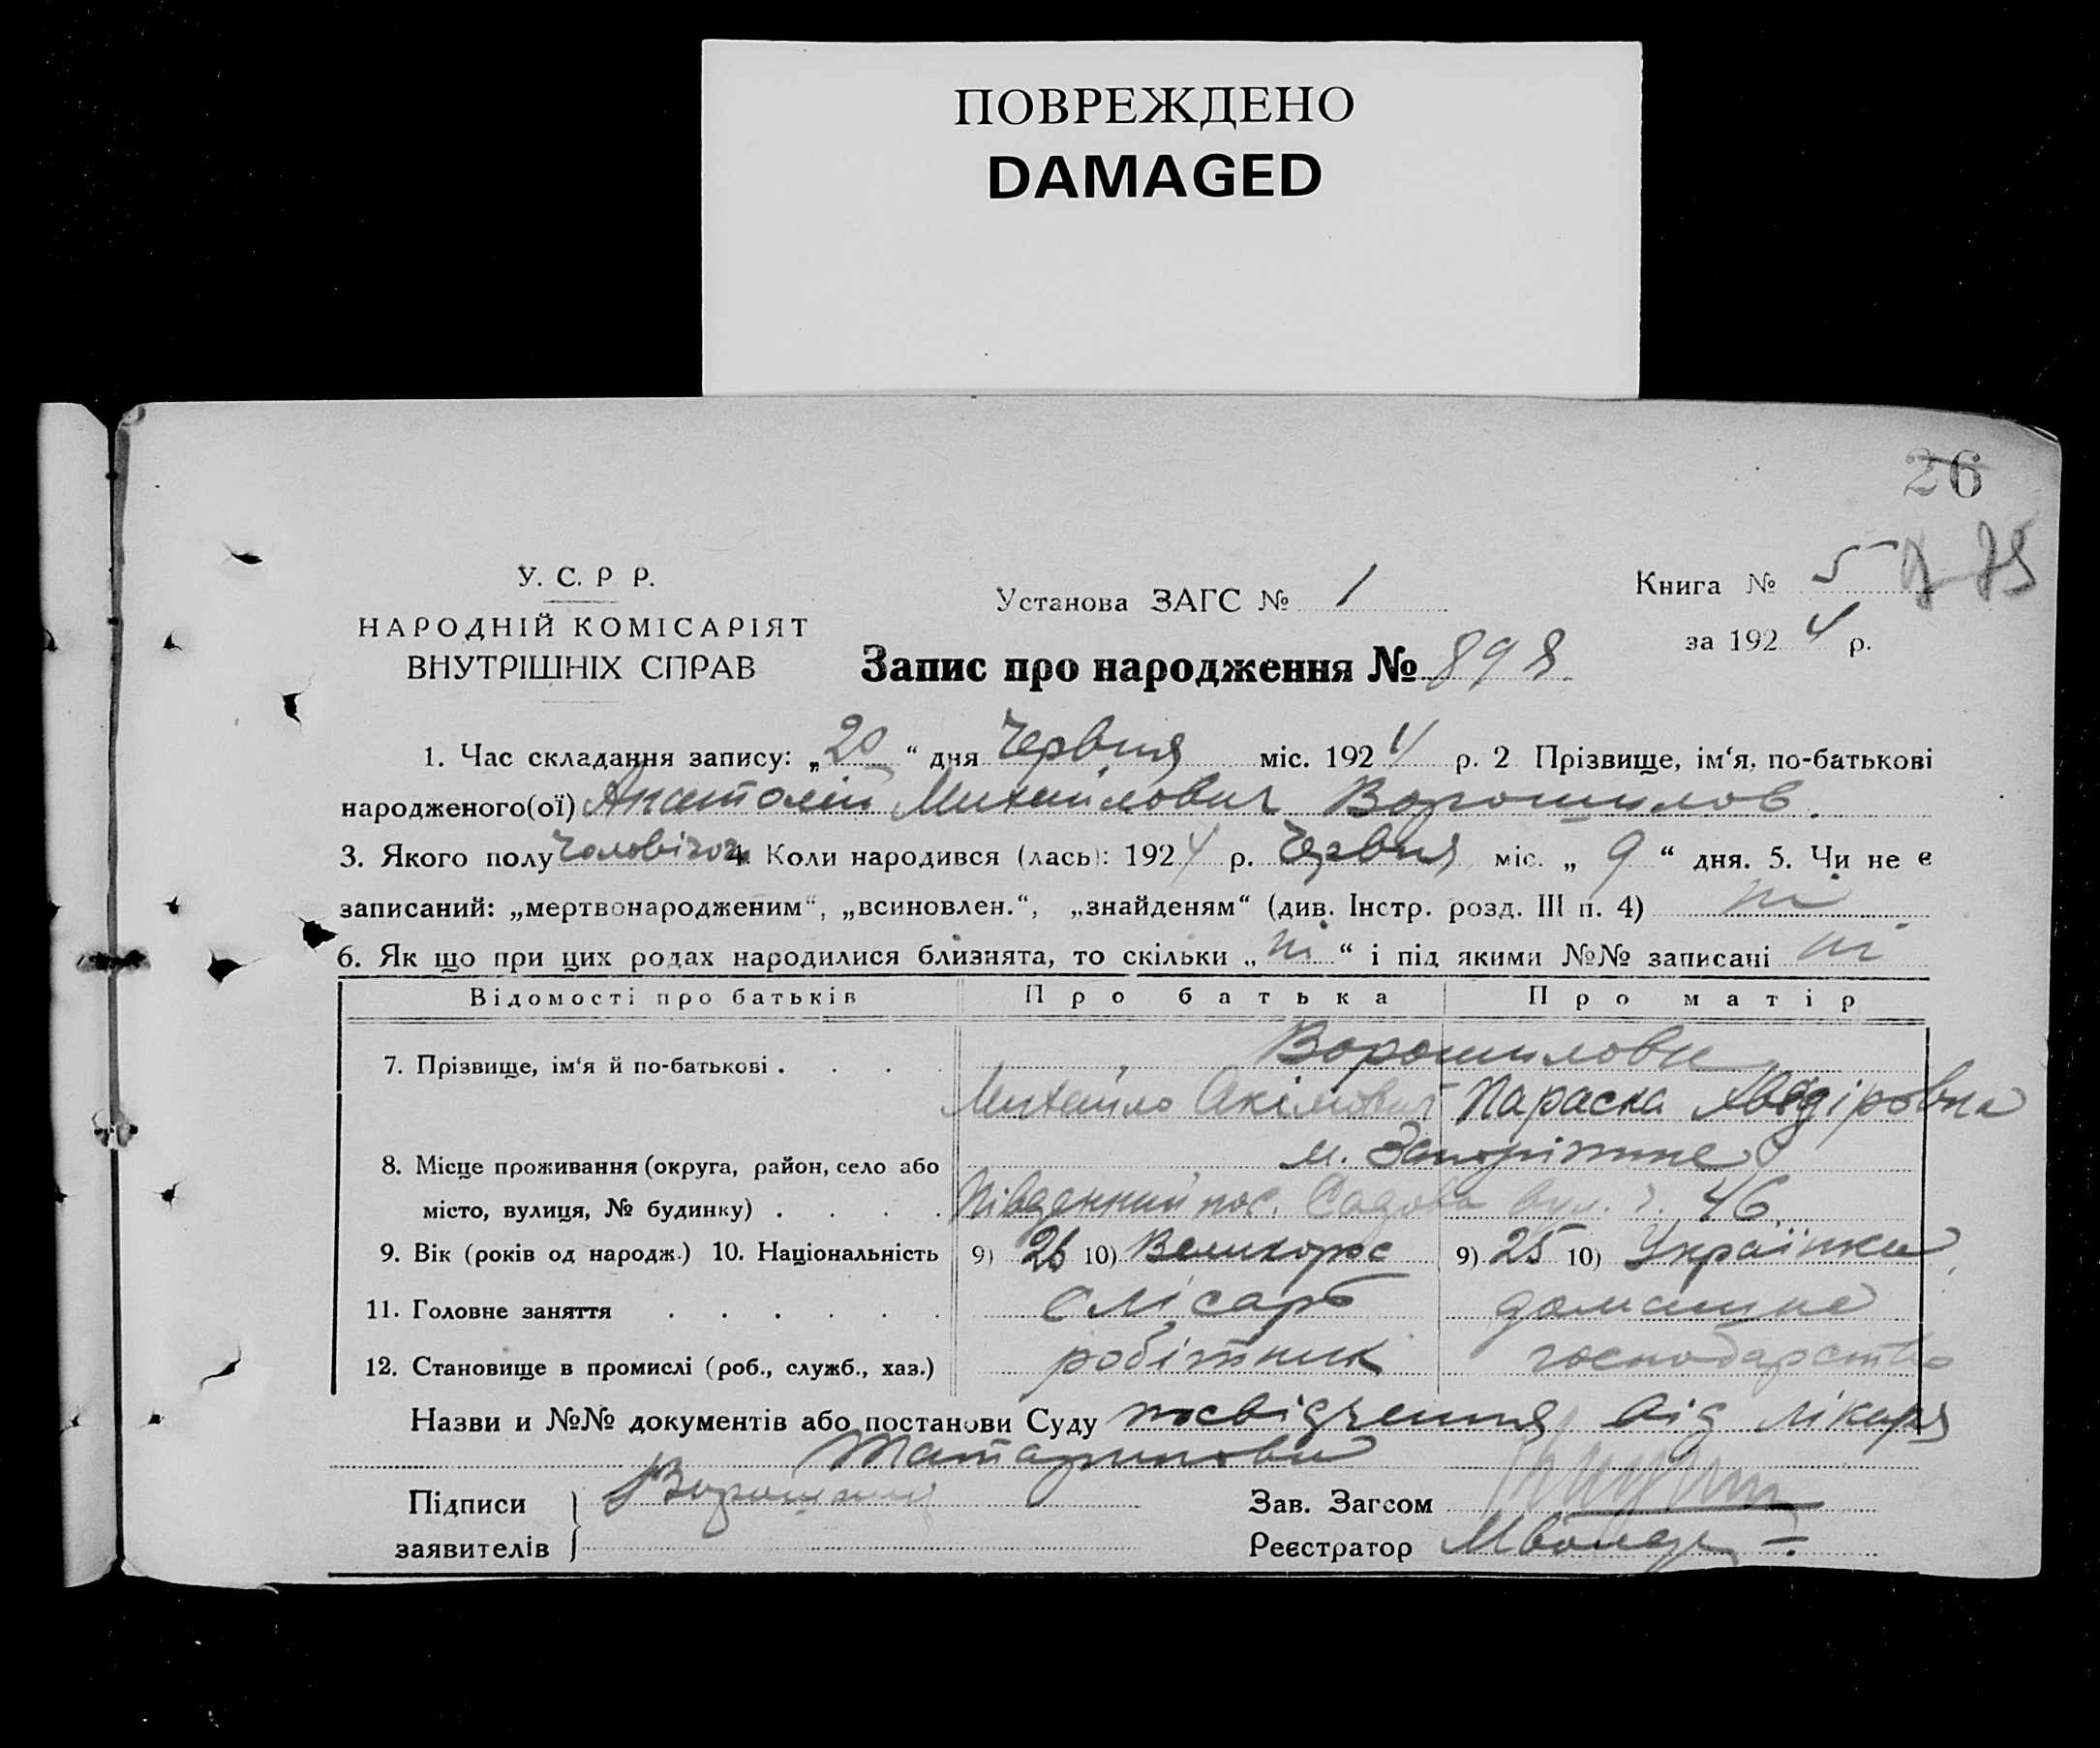 ПОВРЕЖДЕНО
DAMAGED
26
У. С. Р Р.
НАРОДНІЙ КОМІСАРІЯТ
ВНУТРІШНІХ СПРАВ
Установа ЗАГС № 1
Книга № 5
за 1924 р.
Запис про народження № 898
1. Час складання запису: „20“ дня Червня міс. 1924 р. 2 Прізвище, ім‘я, по-батькові
народженого(ої) Анатолій Михайлович Ворошилов
3. Якого полу чоловічого 4. Коли народився (лась): 1924 р. Червня міс. „9“ дня. 5. Чи не є
записаний: „мертвонародженим“, „всиновлен.“, „знайденям“ (див. Інстр. розд. III п. 4) ні
6. Як що при цих родах народилися близнята, то скільки „ні“ і під якими №№ записані ні
Відомості про батьків Про батька Про матір
7. Прізвище, ім‘я й по-батькові . . . . Ворошилови
Михайло Акімович Параска
8. Місце проживання (округа, район, село або м. Запоріжжє
місто, вулиця, № будинку) . . . . Південний пос. Садова вул. ч. 46
9. Вік (років од народж.) 10. Національність 9) 26 10) Великорос 9) 25 10) Українка
11. Головне заняття . . . . . . слісарь домашнє
12. Становище в промислі (роб., служб., хаз.) робітник господарство
Назви и №№ документів або постанови Суду посвідчення від лікаря
Підписи
заявителів
Зав. Загсом
Реєстратор